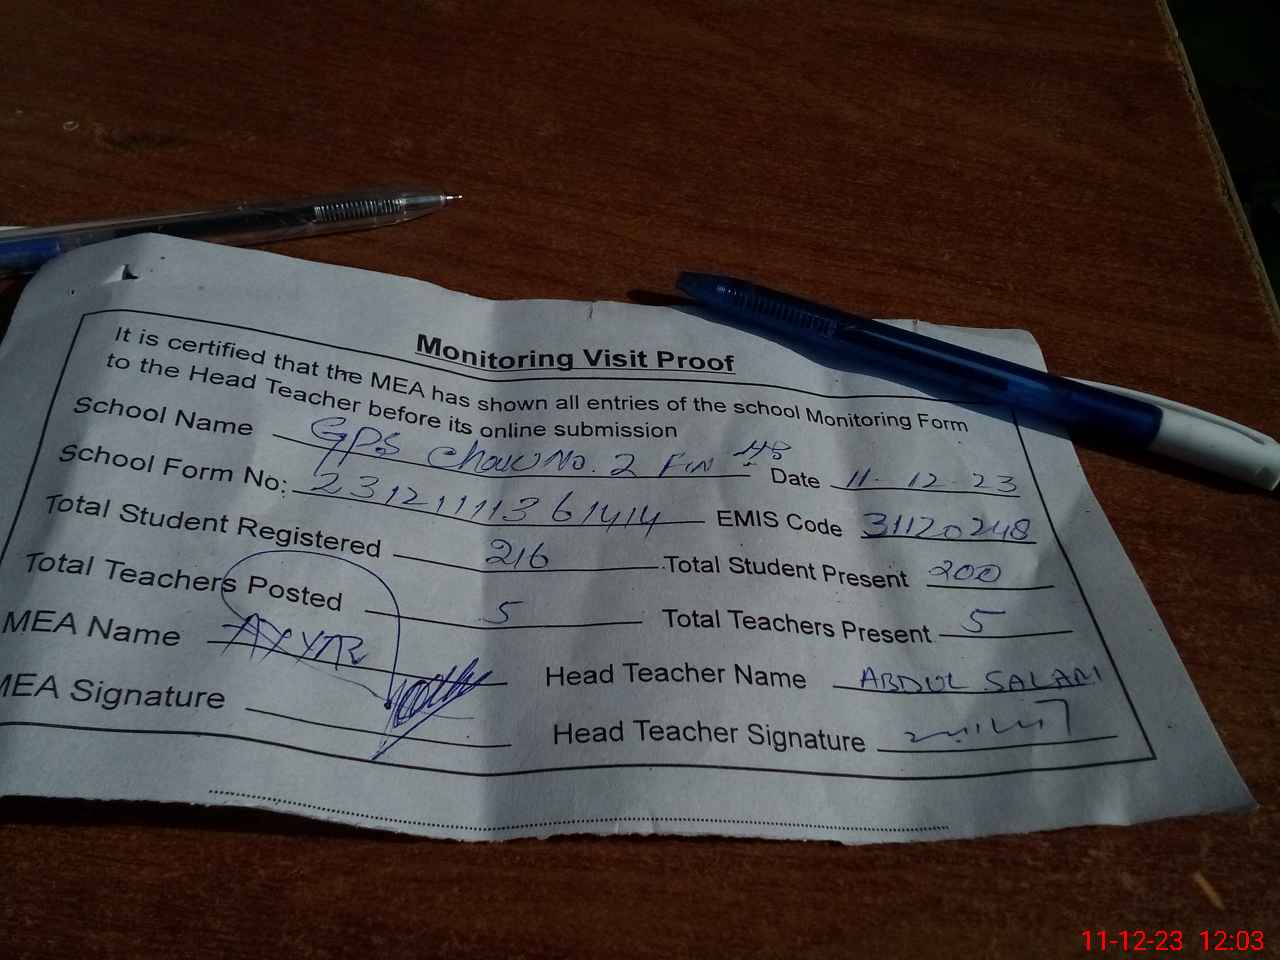 Monitoring Visit Proof
It is certified that the MEA has shown all entries of the school Monitoring Form
to the Head Teacher before its online submission
School Name GPS Chak No. 2 Date 11.12.23
School Form No: EMIS Code 31120248
Total Student Registered 216 Total Student Present 200
Total Teachers Posted 5 Total Teachers Present 5
MEA Name Head Teacher Name ABDUL SALAM
MEA Signature Head Teacher Signature
11-12-23 12:03